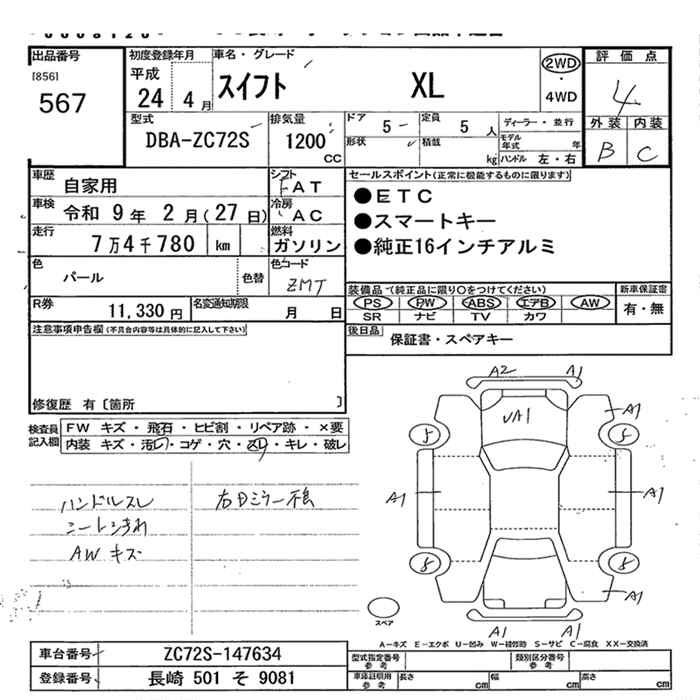 出品番号
[856]
567
初度登録年月
平成
24 4 月
車名・グレード
スイフト XL
2WD
・
4WD
評価点
4
外装 内装
B C
型式
DBA-ZC72S
排気量
1200
CC
ドア
5
定員
5 人
形状
積載
kg
ディーラー・並行
モデル
年式 年
ハンドル 左・右
車歴
自家用
シフト
FAT
車検
令和 9 年 2 月(27 日)
冷房
AC
走行
7万4千780 km
燃料
ガソリン
色
パール
色替
色コード
ZMT
R券
11,330 円
名変通知期限
月 日
セールスポイント(正常に機能するものに限ります)
●ETC
●スマートキー
●純正16インチアルミ
装備品(純正品に限り○をつけてください)
PS PW ABS エアB AW
SR ナビ TV カワ
新車保証書
有・無
後日品
保証書・スペアキー
注意事項申告欄(不具合内容等は具体的に記入して下さい)
修復歴 有〔箇所 〕
検査員
記入欄
FW キズ・飛石・ヒビ割・リペア跡・×要
内装 キズ・汚レ・コゲ・穴・スレ・キレ・破レ
ハンドルスレ
シートシミ汚れ
AW キズ
A2 A1
UA1
A1
S S
A1 A1
S S
A1
A1 A1
スペア
A-キズ E-エクボ U-凹み W-補修跡 S-サビ C-腐食 XX-交換済
車台番号
ZC72S-147634
登録番号
長崎 501 そ 9081
型式指定番号
参考
類別区分番号
参考
車庫証明用
参考
長さ cm
幅 cm
高さ cm